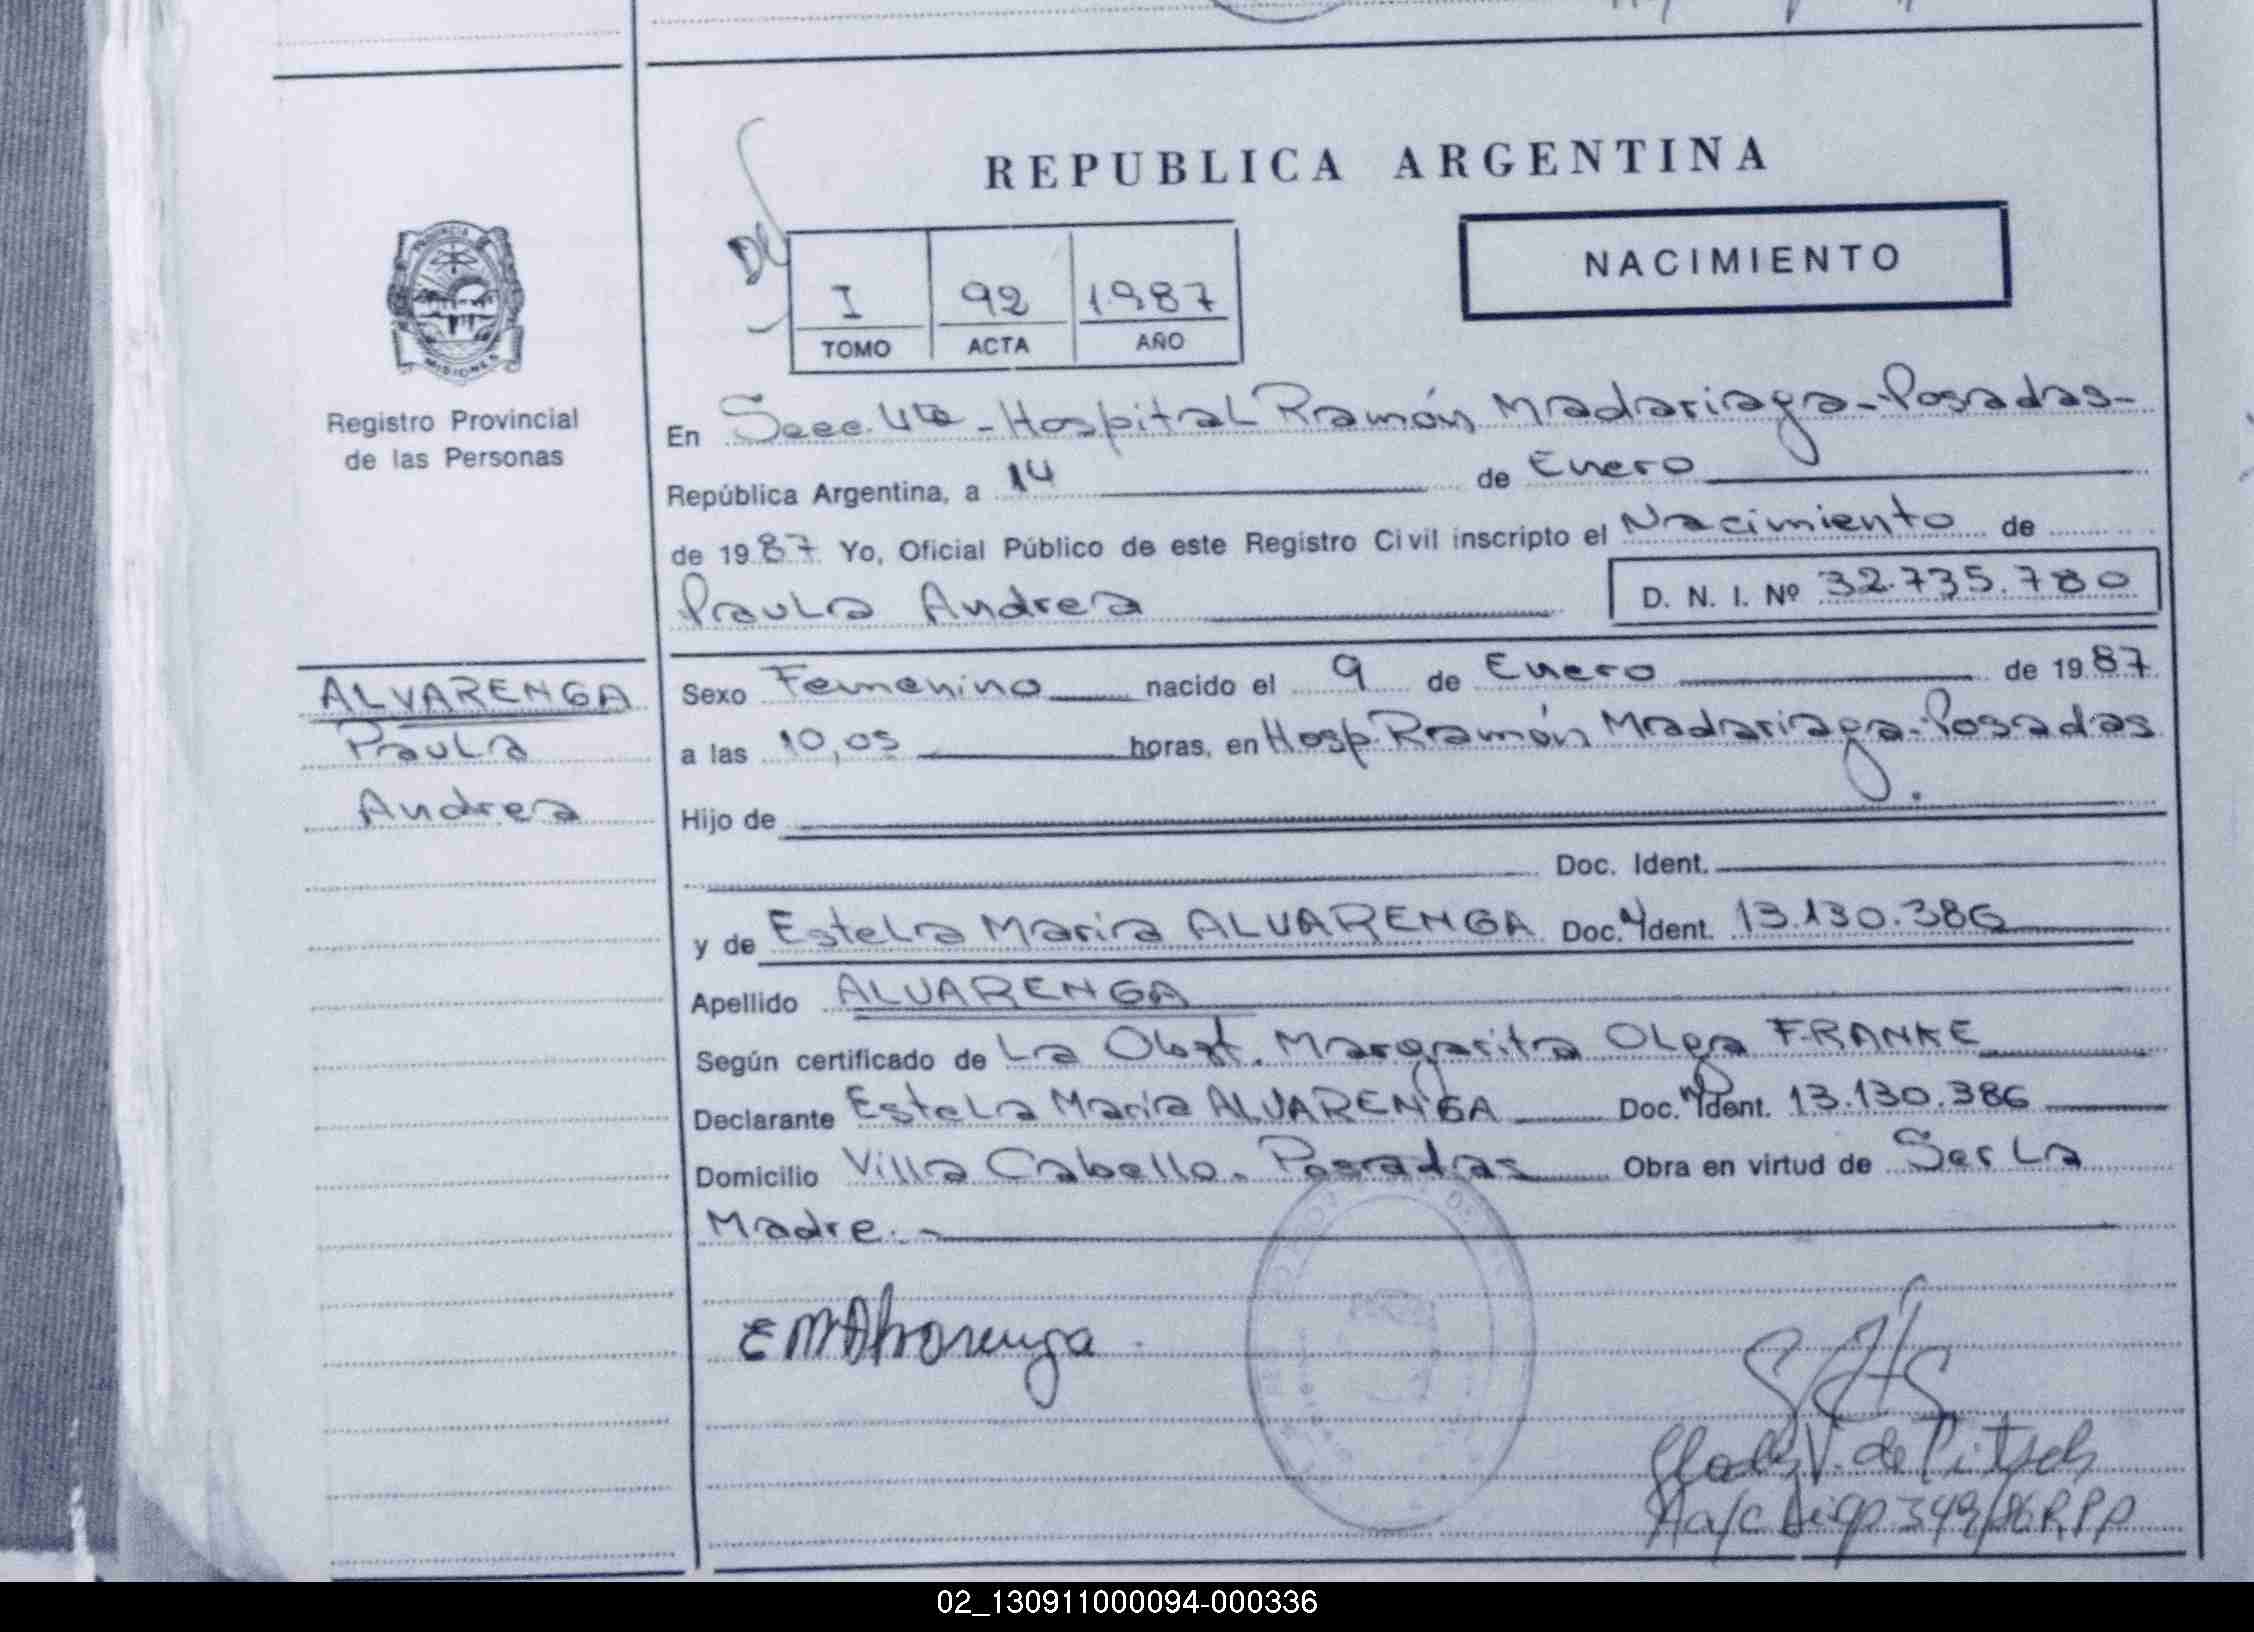 REPUBLICA ARGENTINA
NACIMIENTO
I 92 1987
TOMO ACTA AÑO
PROVINCIA DE
MISIONES
Registro Provincial
de las Personas
En Secc. 4ta - Hospital Ramón Madariaga - Posadas -
República Argentina, a 14 de Enero
de 1987 Yo, Oficial Público de este Registro Civil inscripto el Nacimiento de
Paula Andrea D. N. I. Nº 32.735.780
ALVARENGA
Paula
Andrea
Sexo Femenino nacido el 9 de Enero de 1987
a las 10,05 horas, en Hosp. Ramón Madariaga - Posadas
Hijo de
Doc. Ident.
y de Estela Maria ALVARENGA Doc. Ident. 13.130.386
Apellido ALVARENGA
Según certificado de La Obst. Margarita Olga FRANKE
Declarante Estela María ALVARENGA Doc. Ident. 13.130.386
Domicilio Villa Cabello - Posadas Obra en virtud de Ser La
Madre. -
E M Alvarenga
Gladys V. de Pitsch
349/86 R P P
02_130911000094-000336